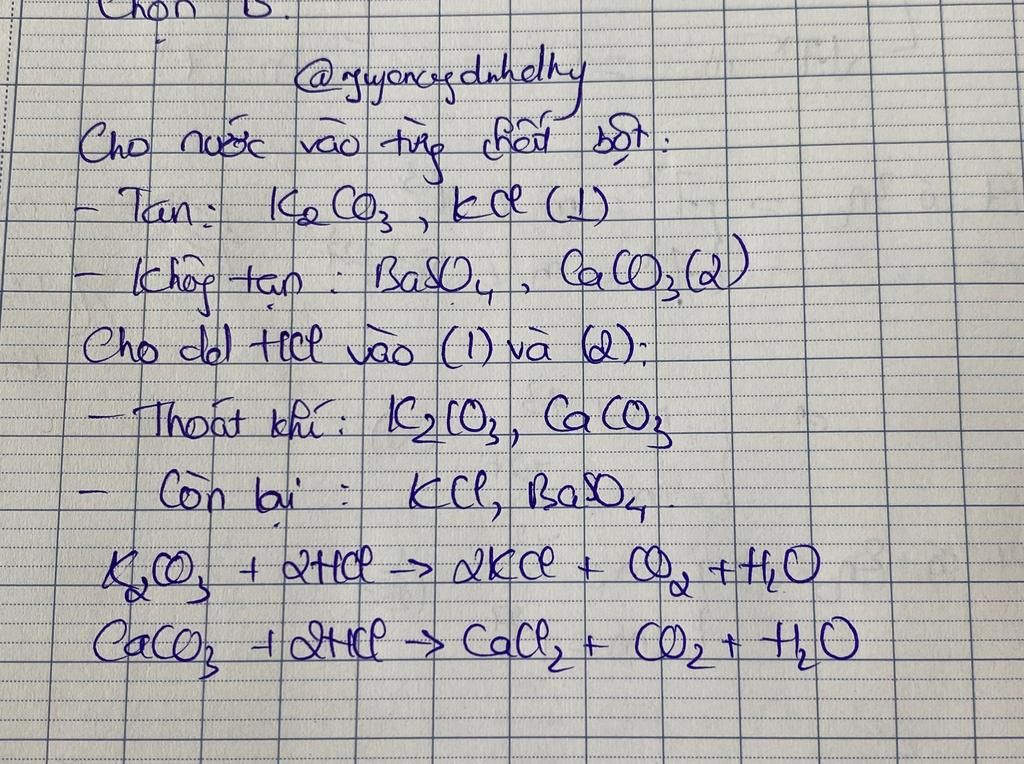 Chọn B.
Cho nước vào từng chất bột:
- Tan: K₂CO₃, KCl (1)
- Không tan: BaSO₄, CaCO₃ (2)
Cho dd HCl vào (1) và (2):
- Thoát khí: K₂CO₃, CaCO₃
- Còn lại: KCl, BaSO₄.
K₂CO₃ + 2HCl → 2KCl + CO₂ + H₂O
CaCO₃ + 2HCl → CaCl₂ + CO₂ + H₂O